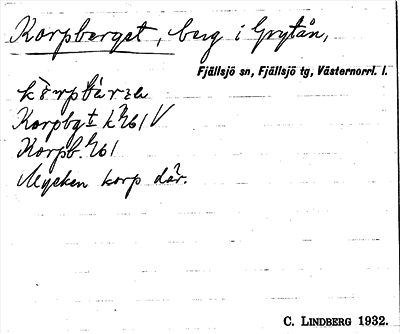 Korpberget, berg i Grytån,
Fjällsjö sn, Fjällsjö tg, Västernorrl. l.
Korpbgt
Korpb.
Mycken korp där.
C. LINDBERG 1932.